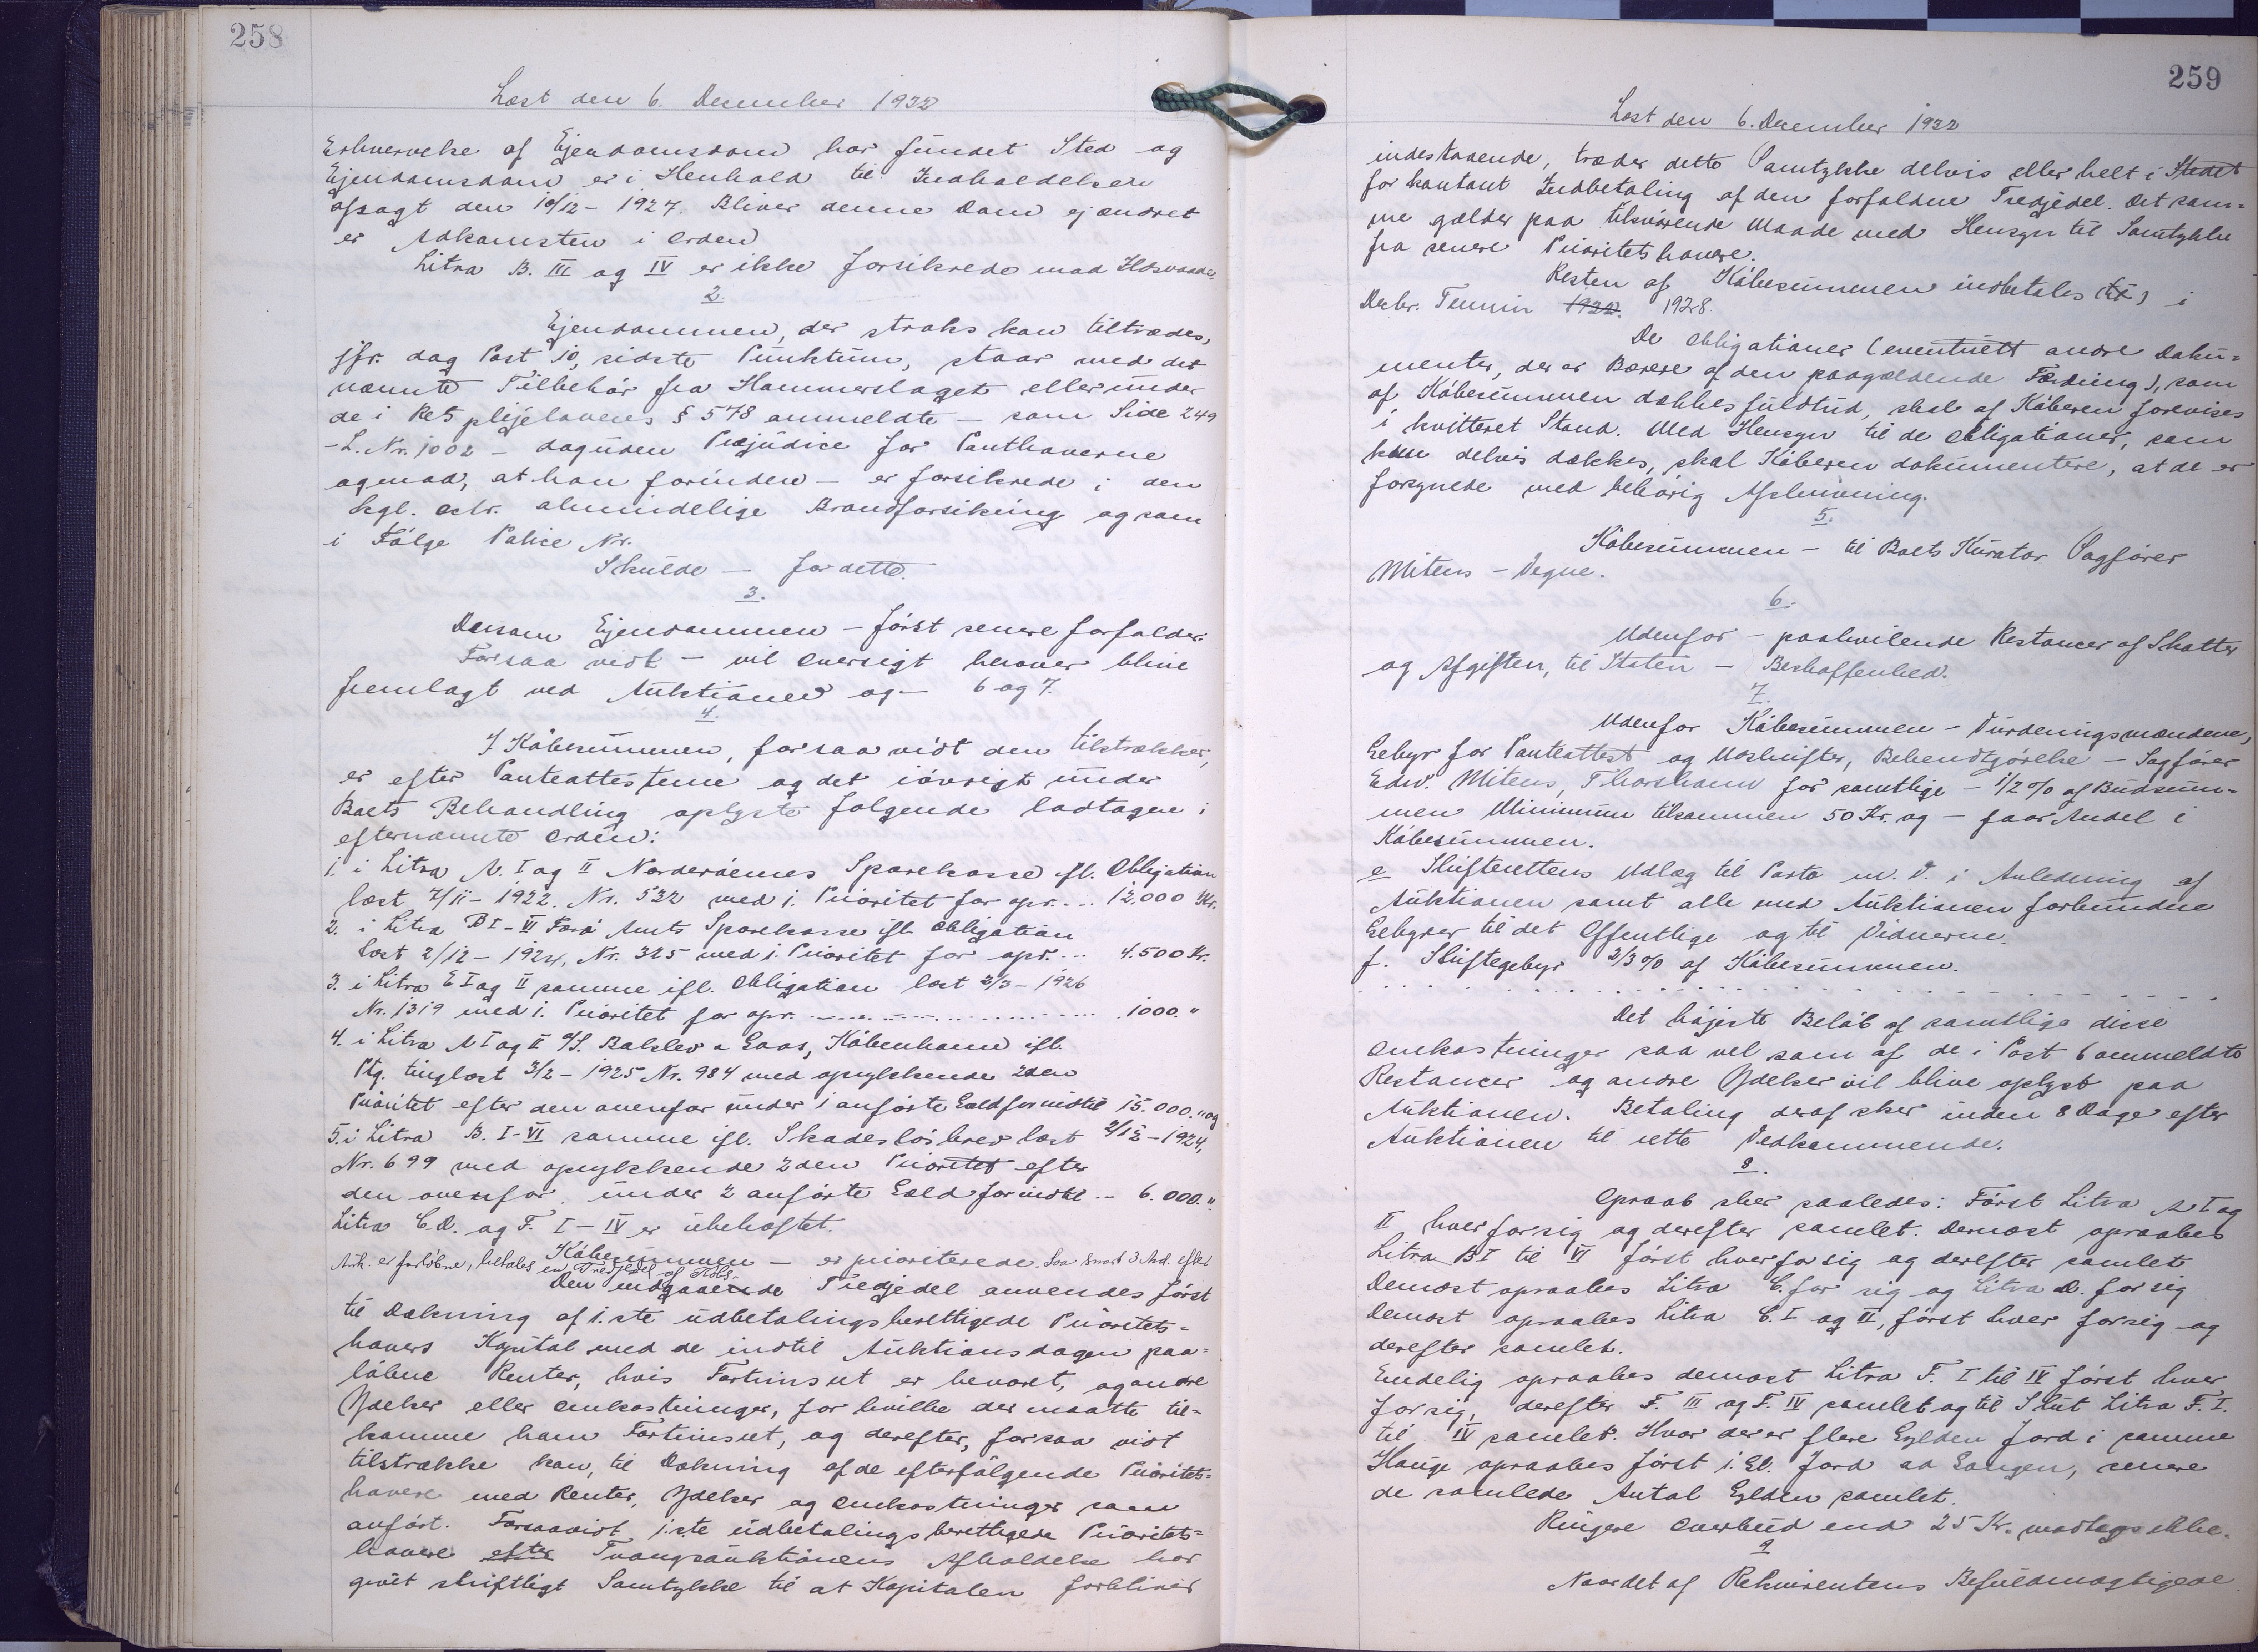 258
Læst den 6. December 1932
Erhvervelse af Ejendomsdom har fundet Sted og
Ejendomsdom er i Henhold til Indholdelsen
afsagt den 10/12 - 1927. Bliver denne Dom ej ændret
er Adkomsten i Orden
Litra B. III og IV er ikke forsikrede mod Ildsvaade,
2.
Ejendommen, der straks kan tiltrædes,
jfr. dog Post 10, sidste Punktum, staar med det
nævnte Tilbehør fra Hammerslaget eller under
de i Retsplejelovens § 578 ommeldte - som Side 249
- L. Nr. 1002 - dog uden Præjudice for Panthaverne
og mod, at han forinden - er forsikrede i den
kgl. oktr. almindelige Brandforsikring og som
i Følge Police Nr.
Skulde - for dette.
3.
Dersom Ejendommen - først senere forfalder.
Forsaavidt - vil Oversigt herover blive
fremlagt ved Auktionen og - 6 og 7.
4.
I Købesummen, forsaavidt den tilstrækker,
er efter Panteattesterne og det iøvrigt under
Boets Behandling oplyste følgende lodtagen i
efternævnte Orden:
1. i Litra A. I og II Norderøernes Sparekasse ifl. Obligation
læst 7/11 - 1922. Nr. 532 med 1. Prioritet for opr. ... 12.000 Kr.
2. i Litra B I - VI Færø Amts Sparekasse ifl. Obligation
læst 2/12 - 1924, Nr. 325 med 1. Prioritet for opr. ... 4.500 Kr.
3. i Litra E I og II samme ifl. Obligation læst 3/3 - 1926
Nr. 1319 med 1. Prioritet for opr. ... 1000. "
4. i Litra A I og II A/S. Balslev & Gaas, København ifl.
Ptg. tinglæst 3/2 - 1925 Nr. 984 med oprykkende 2den
Prioritet efter den ovenfor under 1 anførte Gæld for indtil 15.000. " og
5. i Litra B. I-VI samme ifl. Skadesløsbrev læst 2/12 - 1924,
Nr. 699 med oprykkende 2den Prioritet efter
den ovenfor under 2 anførte Gæld for indtil ... 6.000. "
Litra C. D. og F. I - IV er ubehæftet.
Købesummen - er prioriterede. Saa snart 3 Md. efter
Auk. er forløbne, betales en Tredjedel af Købs.
Den indgaaende Tredjedel anvendes først
til Dækning af 1.ste udbetalingsberettigede Prioritets-
havers Kapital med de indtil Auktionsdagen paa-
løbne Renter, hvis Fortrinsret er bevaret, og andre
Ydelser eller Omkostninger, for hvilke der maatte til-
komme ham Fortrinsret, og derefter, forsaavidt
tilstrække kan, til Dækning af de efterfølgende Prioritets-
havere med Renter, Ydelser og Omkostninger som
anført. Forsaavidt 1.ste udbetalingsberettigede Prioritets-
havere efter Tvangsauktionens Afholdelse har
givet skriftligt Samtykke til at Kapitalen forbliver
259
Læst den 6. December 1932
indestaaende, træder dette Samtykke delvis eller helt i Stedet
for kontant Indbetaling af den forfaldne Tredjedel. Det sam-
me gælder paa tilsvarende Maade med Hensyn til Samtykke
fra senere Prioritetshavere.
Resten af Købesummen indbetales (til) i
Decbr. Termin 1922. 1928.
De Obligationer (eventuelt andre Doku-
menter, der er Bærere af den paagældende Fordring), som
af Købesummen dækkes fuldtud, skal af Køberen forevises
i kvitteret Stand. Med Hensyn til de Obligationer, som
kun delvis dækkes, skal Køberen dokumentere, at de er
forsynede med behørig Afskrivning.
5.
Købesummen - til Boets Kurator Sagfører
Mitens - Vegne.
6.
Udenfor - paahvilende Restancer af Skatter
og Afgifter, til Staten - Beskaffenhed.
7.
Udenfor Købesummen - Vurderingsmændene,
Gebyr for Panteattest og Udskrifter, Bekendtgørelse - Sagfører
Edw. Mitens, Thorshavn for samtlige - 1/2 % af Budsum-
men Minimum tilsammen 50 Kr. og - faar Andel i
Købesummen.
e Skifterettens Udlæg til Porto m. V. i Anledning af
Auktionen samt alle med Auktionen forbundne
Gebyrer til det Offentlige og til Vidnerne.
f. Skiftegebyr 2/3 % af Købesummen.
Det højeste Beløb af samtlige disse
Omkostninger saa vel som af de i Post 6 ommeldte
Restancer og andre Ydelser vil blive oplyst paa
Auktionen. Betaling deraf sker inden 8 Dage efter
Auktionen til rette Vedkommende.
8.
Opraab sker saaledes: Først Litra A I og
II hver forsig og derefter samlet. Dernæst opraabes
Litra B I til VI først hver for sig og derefter samlet
Dernæst opraabes Litra C. for sig og Litra D. for sig
Dernæst opraabes Litra E. I og II, først hver forsig og
derefter samlet.
Endelig opraabes dernæst Litra F. I til IV først hver
forsig, derefter F. III og F. IV samlet og til Slut Litra F. I.
til IV samlet. Hvor der er flere Gylden Jord i samme
Hauge opraabes først 1. Gl. Jord ad Gangen, senere
de samlede Antal Gylden samlet.
Ringere Overbud end 25 Kr. modtages ikke.
9
Naar det af Rekvirentens Befuldmægtigede